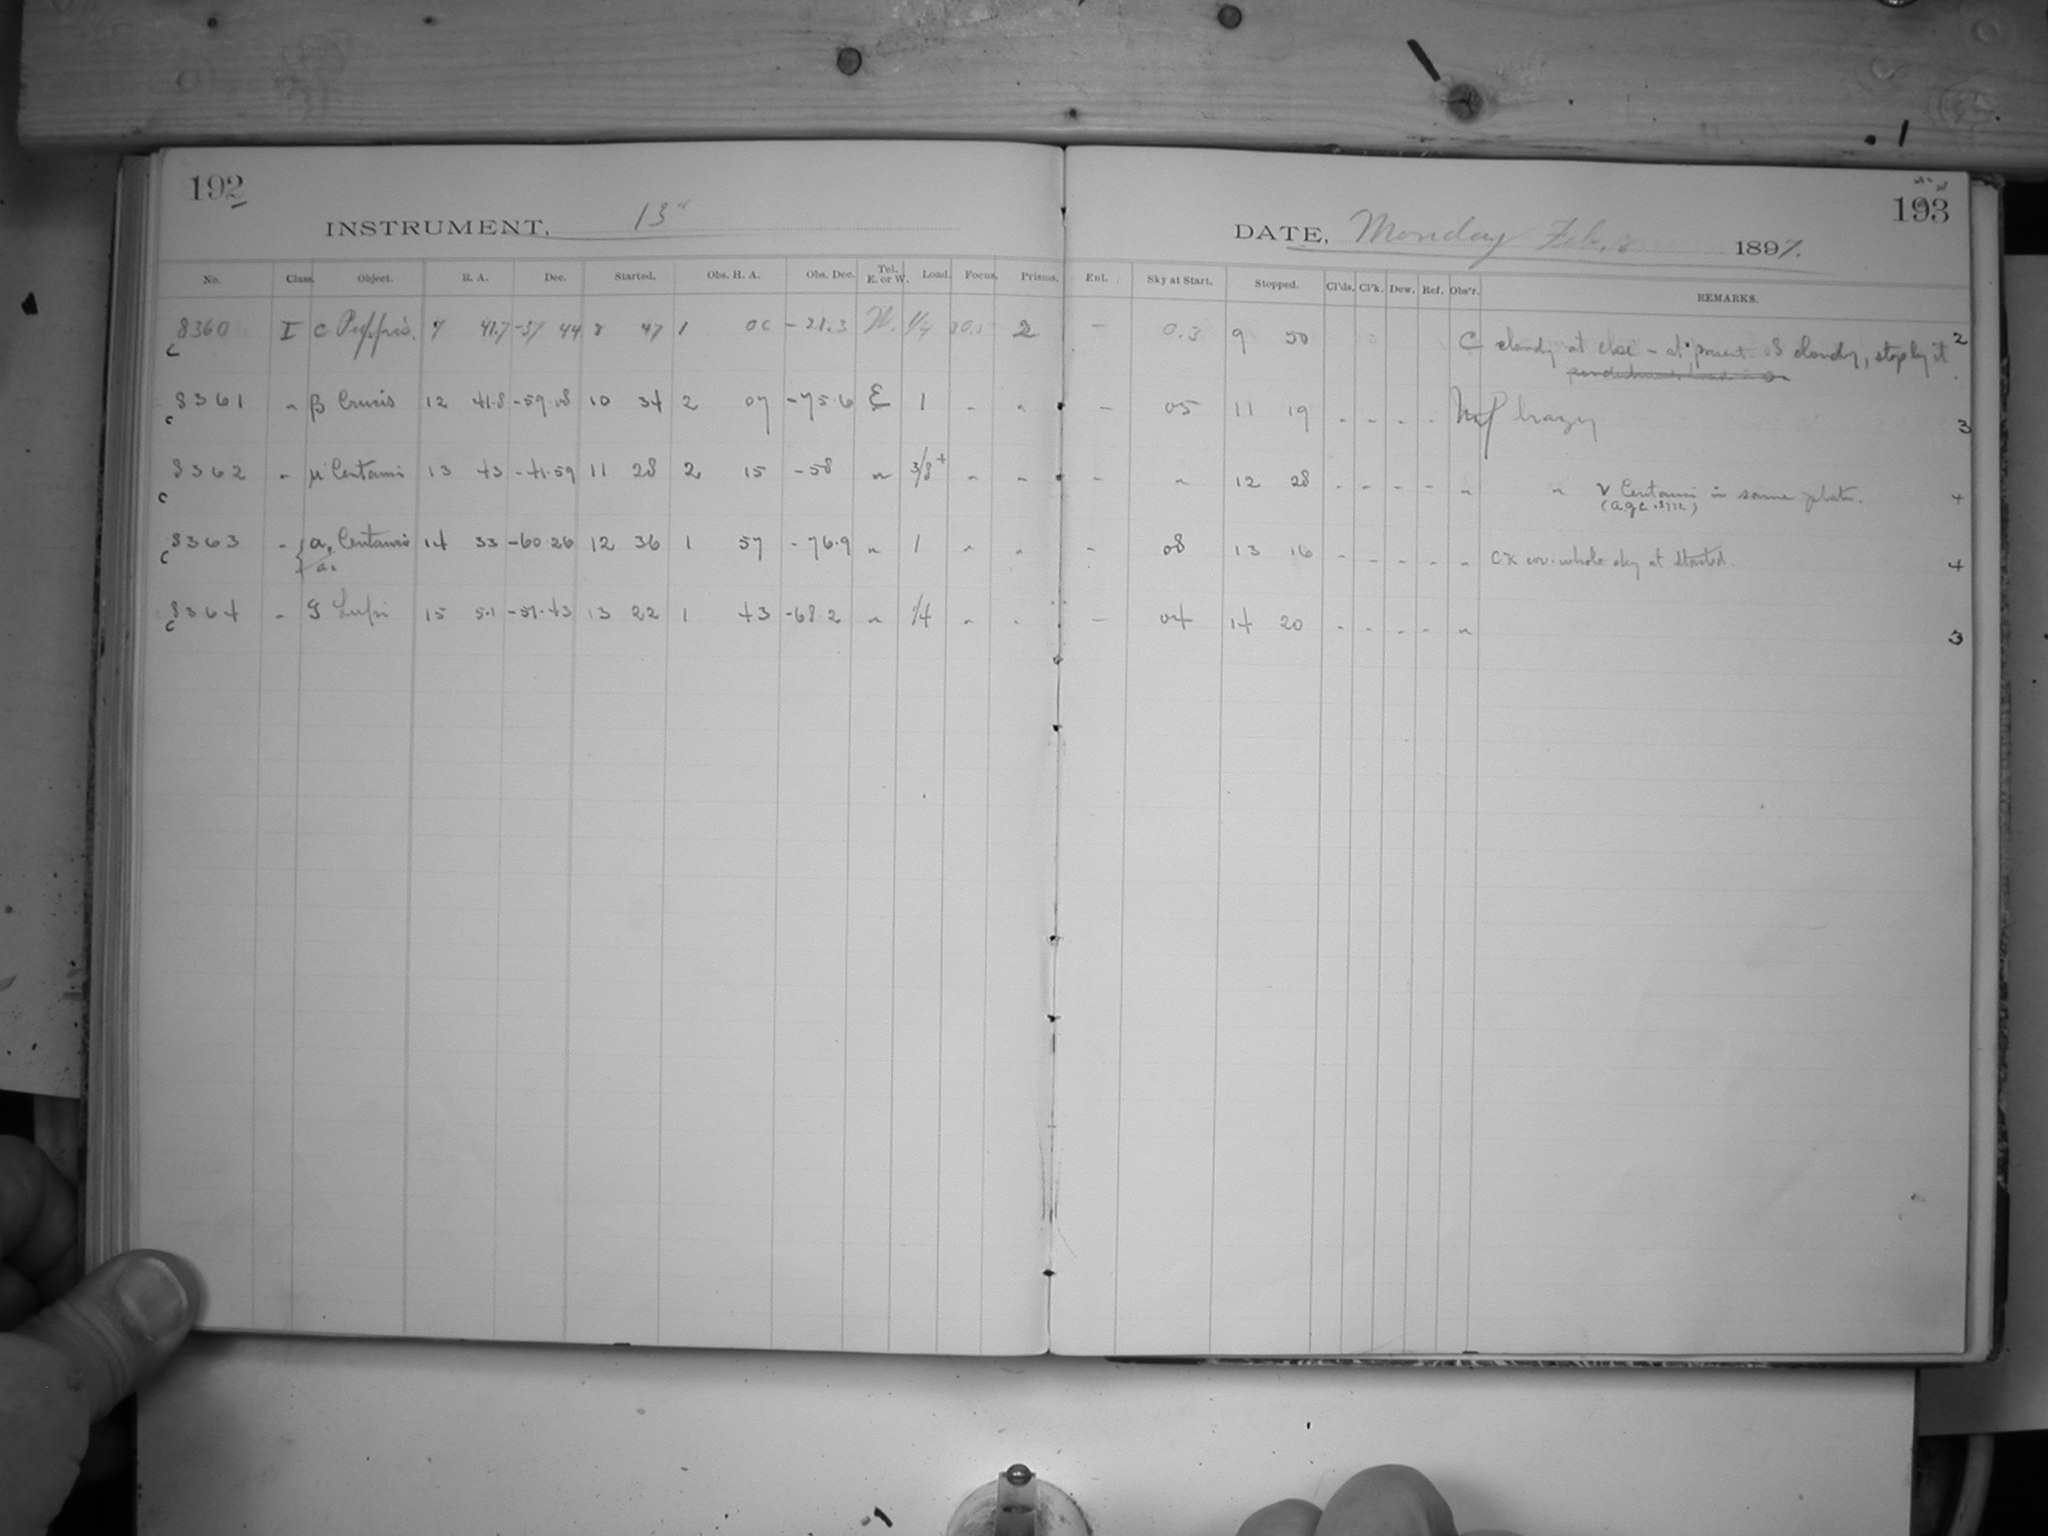 192
193
INSTRUMENT, 13"
DATE, Monday Feb. 8 1897.
No. Class. Object. R. A. Dec. Started. Obs. H. A. Obs. Dec. Tel. E. or W. Load. Focus. Prisms. Ent. Sky at Start. Stopped. Cl'ds. Cl'k. Dew. Ref. Obs'r. REMARKS.
8360 I c Puppis. 7 41.7 -37 44 8 47 1 00 - 21.3 W. 1/4 2 - 0.3 9 50 C cloudy at close - at present cloudy, stop by it 2
c
8361 " β Crucis 12 41.8 -59.08 10 34 2 07 -75.6 E 1 " " - 05 11 19 " " " " hazy 3
c
8362 " μ Centauri 13 43 -41.59 11 28 2 15 -58 " 3/8+ " " - " 12 28 " " " " " " ν Centauri in same plate. 4
c
8363 " α, Centauri 14 33 -60.26 12 36 1 57 -76.9 " 1 " " - 08 13 16 " " " " " whole sky at started. 4
c
8364 " g Lupi 15 5.1 -51.43 13 22 1 43 -68.2 " 1/4 " " - 04 14 20 " " " " " 3
c